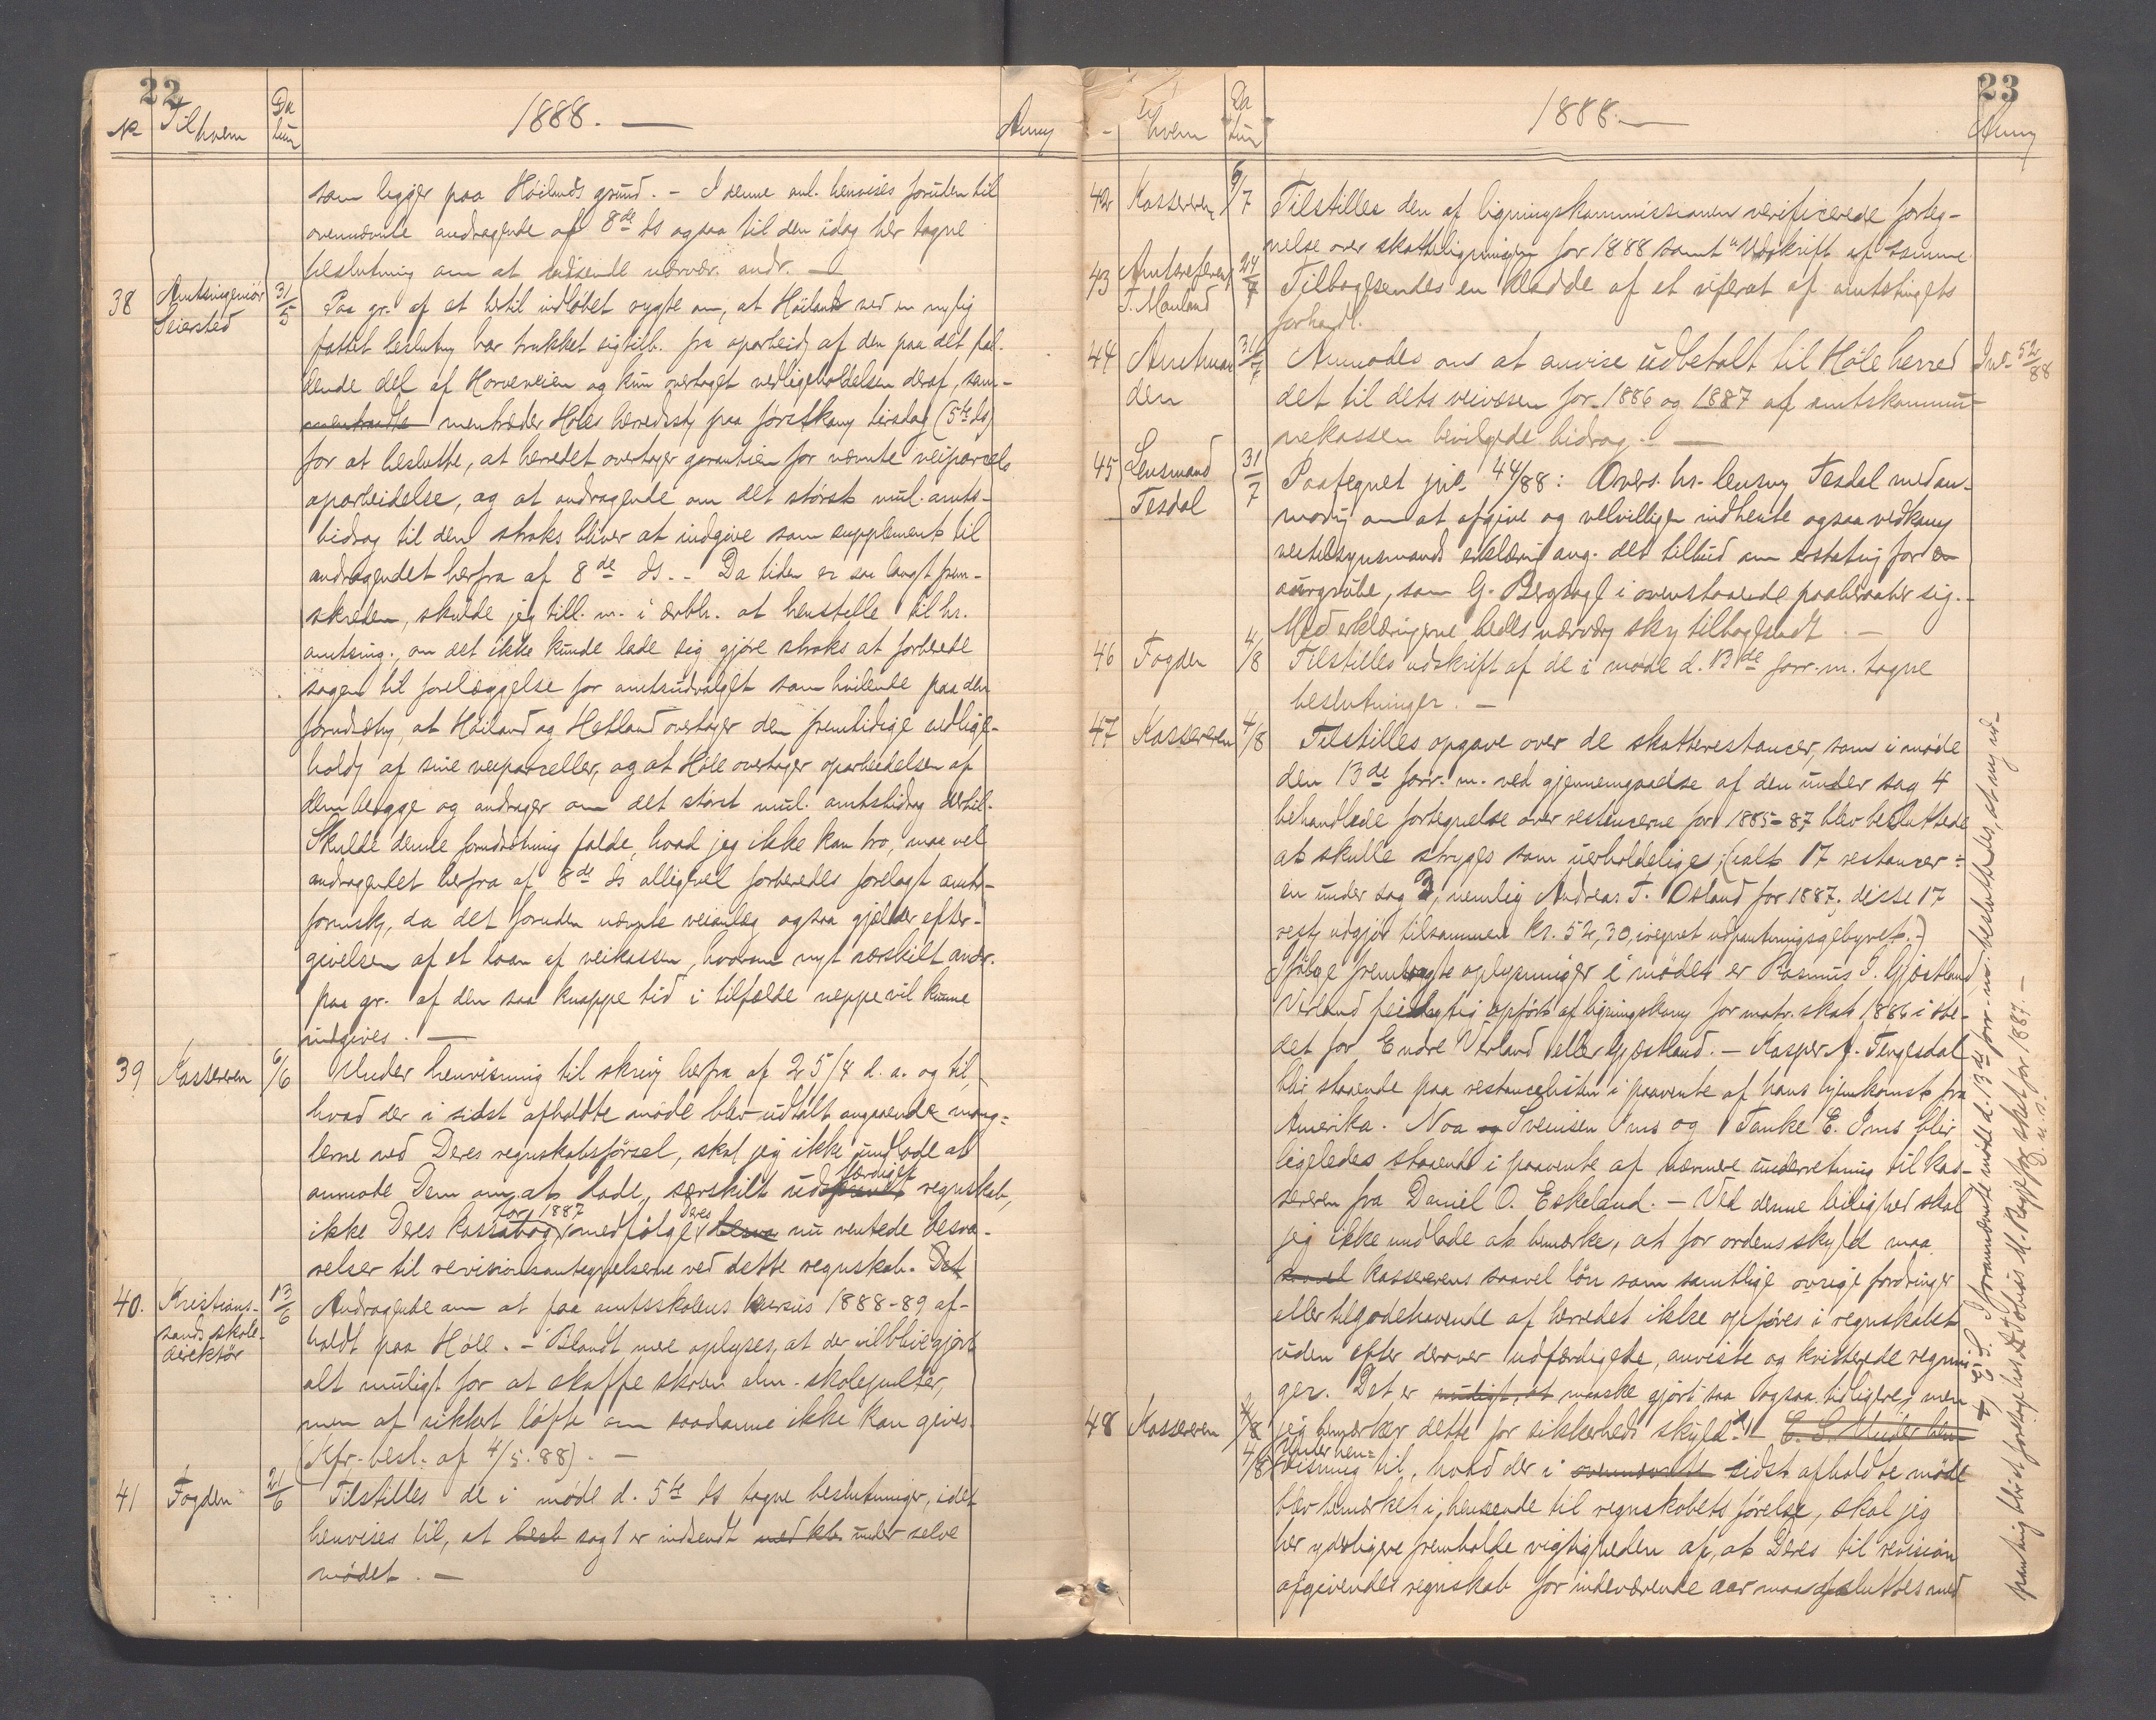 22
№ Til hvem Da tum 1888. — Anm
som ligger paa Høilands grund. - I denne anl. henvises foruden til
ovennævnte andragende af 8de ds ogsaa til den idag her tagne
beslutning om at indsende nærvær. andr. —
38 Amtsingeniør Seiersted 31/5 Paa gr. af et hertil indløbet rygte om, at Høiland ved en nylig
fattet beslutng har trukket sig tilb. fra oparbeidg af den paa det fal-
dende del af Horveveien og kun overtaget vedligeholdelsen deraf, sam-
mentræder Høles herredssty paa førstkomg tirsdag (5te ds)
for at beslutte, at herredet overtager garantien for nævnte veiparcels
oparbeidelse, og at andragende om det størst mul. amts-
bidrag til den straks bliver at indgive som supplement til
andragendet herfra af 8de ds. - Da tiden er saa langt frem-
skreden, skulde jeg till. m. i ærbh. at henstelle til hr.
amtsing., om det ikke kunde lade sig gjøre straks at forberede
sagen til forelæggelse for amtsudvalget som hvilende paa den
forudsætng, at Høiland og Hetland overtager den fremtidige vedlige-
holdg af sine veiparceller, og at Høle overtager oparbeidelsen af
dem begge og andrager om det størst mul. amtsbidrag dertil.
Skulde denne forudsætning falde, hvad jeg ikke kan tro, maa vel
andragendet herfra af 8de ds alligevel forberedes forelagt amts-
formsk, da det foruden nævnte veianlæg ogsaa gjælder efter-
givelsen af et laan af veikassen, hvorom nyt særskilt andr.
paa gr. af den saa knappe tid i tilfælde neppe vil kunne
indgives. —
39 Kassereren 6/6 Under henvisning til skrivg herfra af 25/4 d. a. og til
hvad der i sidst afholdte møde blev udtalt angaaende mang-
lerne ved Deres regnskabsførsel, skal jeg ikke undlade at
anmode Dem om at lade særskilt udfærdiget regnskab,
ikke Deres kassabog for 1887 medfølge Deres nu ventede besva-
relser til revisionsantegnelserne ved dette regnskab. Det
40. Kristians- sands skole- direktør 13/6 Andragende om at faa amtsskolens kursus 1888-89 af-
holdt paa Høle. - Blandt mere oplyses, at der vil blive gjort
alt muligt for at skaffe skolen alm. skolepulter,
men at sikkert løfte om saadanne ikke kan gives.
(Kfr. besl. af 4/5. 88). —
41 Fogden 21/6 Tilstilles de i møde d. 5te ds tagne beslutninger, idet
henvises til, at besl sag 1 er indsendt med kb under selve
mødet. —
23
hvem Da tum 1888. — Anm
42 Kassereren 6/7 Tilstilles den af ligningskommissionen verificerede forteg-
nelse over skatteligningen for 1888 samt udskrift af samme.
43 Amtsreferent T. Mauland 24/7 Tilbagesendes en kladde af et referat af amtstingets
forhandl.
44 Amtman den 31/7 Anmodes om at anvise udbetalt til Høle herred Jnl. 52/88
det til dets veivæsen for 1886 og 1887 af amtskommu-
nekassen bevilgede bidrag. —
45 Lensmand Tesdal 31/7 Paategnet jnl. 44/88: Overs. hr. lensmg Tesdal med an-
modg om at afgive og velvilligen indhente ogsaa vedkomg
veitilsynsmands erklæring ang. det tilbud om erstatng for en
aurgrube, som G. Bergsagl i ovenstaaende paaberaaber sig. -
Med erklæringerne bedes nærværg sky tilbagesendt. —
46 Fogden 4/8 Tilstilles udskrift af de i møde d. 13de forr. m. tagne
beslutninger. —
47 Kassereren 4/8 Tilstilles opgave over de skatterestancer, som i møde
den 13de forr. m. ved gjennemgaaelse af den under sag 4
behandlede fortegnelse over restancerne for 1885-87 blev besluttede
at skulle stryges som uerholdelige; (ialt 17 restancer -
en under sag 3, nemlig Andreas T. Osland for 1887; disse 17
restg udgjør tilsammen kr. 52,30, iregnet udpantningsgebyret. -)
Ifølge fremlagte oplysninger i mødet er Rasmus I. Gjøstland,
Verland feilagtig opført af ligningskomg for matr. skat 1886 i ste-
det for Endre Verland eller Gjøstland. - Kasper A. Tengesdal
blir staaende paa restancelisten i paavente af hans hjemkomst fra
Amerika. Noa Sveinsen Ims og Tanke E. Ims blir
ligeledes staaende i paavente af nærmere underretning til kas-
sereren fra Daniel O. Eskeland. - Ved denne leilighed skal
jeg ikke undlade at bemærke, at for ordens skyld maa
saavel kassererens saavel løn som samtlige øvrige fordringer
eller tilgodehavende af herredet ikke opføres i regnskabet
uden efter derover udfærdigede, anviste og kvitterede regnin-
ger. Det er muligt, at maaske gjørt saa ogsaa tidligere, men
jeg bemærker dette for sikkerheds skyld. - E. S. Under hen-
48 Kassereren 4/8 Under hen-
visning til, hvad der i ovennævnte sidst afholdte møde
blev bemærket i henseende til regnskabets førelse, skal jeg
her yderligere fremholde vigtigheden af, at Deres til revision
afgivendes regnskab for indeværende aar maa afsluttes med
4/8 E. S. I fornævnte møde d. 13de forr. m. besluttedes, at ny ud-
pantng blir at foretage hos Tobias M. Røgje for skat for 1887. —